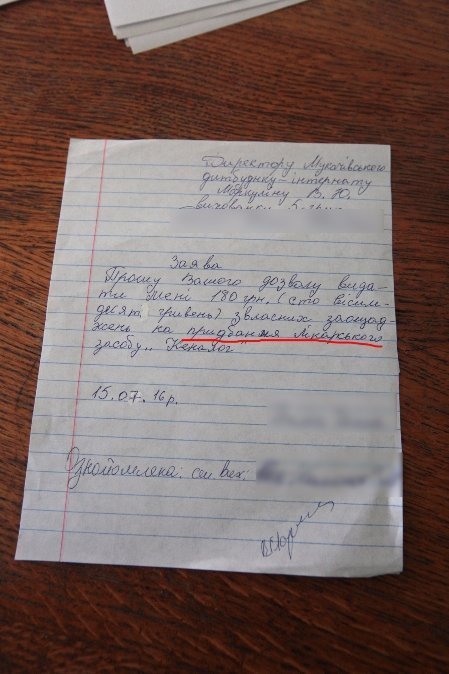 Директору Мукачівського
дитбудинку-інтернату
Моркляну В. Ю.
вихованки
Заява
Прошу Вашого дозволу вида-
ти мені 180 грн. (сто вісім-
десят гривень) з власних заощад-
жень на придбання лікарського
засобу „Кеналог"
15.07.16р.
Ознайомлена: см. вех.